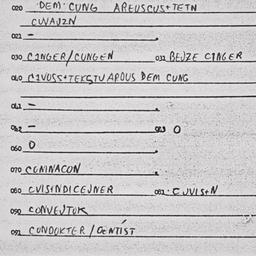 020 DEM CUNG AREUSCUS+TETN
CUVAJZN
021 –
030 CINGER/CUNGEN 032 BEJZE CINGER
040 CIVOSS+TEKSTUAPOUS DEM CUNG
041 –
042 – 043 0
060 0
070 CUNINACON
080 CVISINDICEJNER 081 CJVIS+N
090 CONVEJTUK
091 CONDOKTER / DENTIST